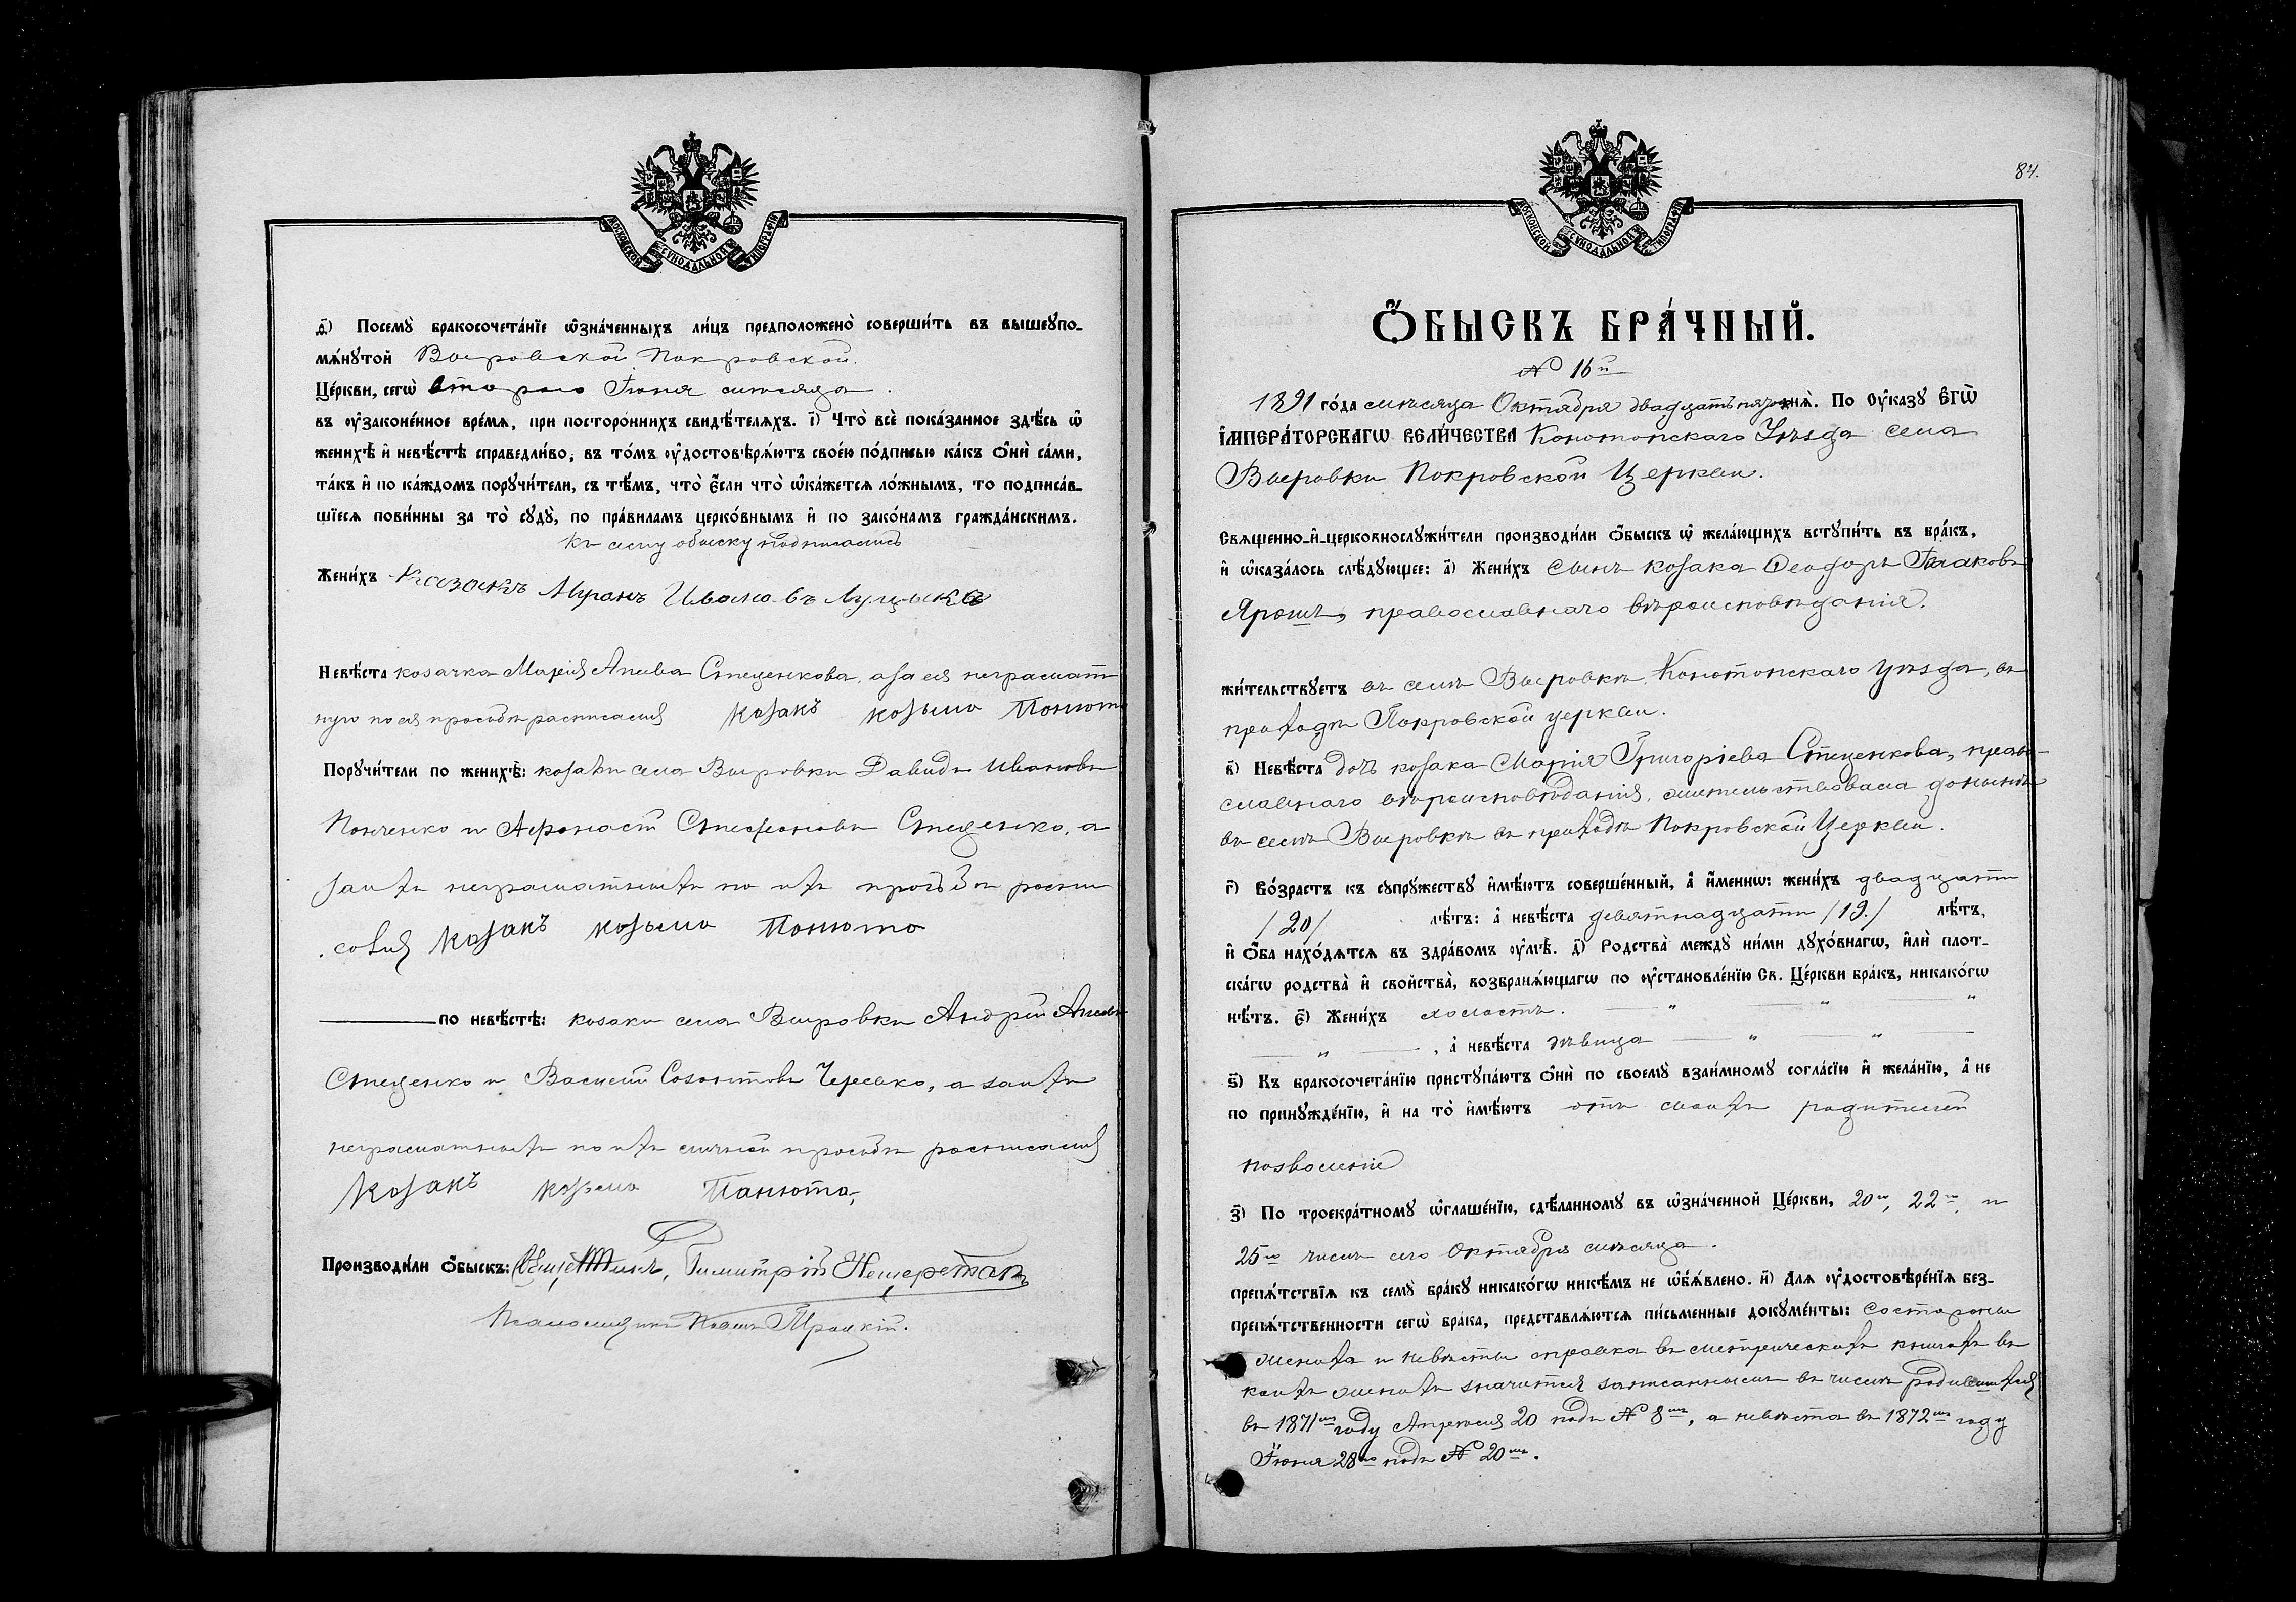 МОСКОВСКОЙ СѴНОДАЛЬНОЙ ТИПОГРАФІИ
д҃і) Посемꙋ̀ бракосочета́нїе ѡ҆зна́ченныхъ ли́цъ предположено̀ соверши́ть въ вышеꙋпо-
мѧ́нꙋтой Выровской Покровской.
Це́ркви, сегѡ̀ втораго Іюня мѣсяца.
въ ᲂу҆законе́нное вре́мѧ, при посторо́ннихъ свидѣ́телѧхъ. і҃) Что̀ всѐ пока́занное здѣ́сь ѡ҆
женихѣ̀ и҆ невѣ́стѣ справедли́во, въ то́мъ ᲂу҆достовѣрѧ́ютъ свое́ю по́дписью ка́къ ѻ҆нѝ са́ми,
та́къ и҆ по ка́ждомъ порꙋчи́тели, съ тѣ́мъ, что̀ є҆́сли что̀ ѡ҆ка́жется ло́жнымъ, то подписа́в-
шїесѧ пови́нны за то̀ сꙋдꙋ̀, по пра́виламъ церко́внымъ и҆ по зако́намъ гражда́нскимъ.
Къ сему обыску подписались
Жени́хъ Казакъ Миронъ Ивановъ Луцыкъ
Невѣ́ста козачка Марія Стеценкова, а за ея неграмат
ную по ея просьбѣ расписался Козакъ Козьма Панюта
Порꙋчи́тели по женихѣ̀: козаки села Выровки Давидъ Ивановъ
Панченко и Афанасій Стефановъ Стеценко, а
за ихъ неграматныхъ по ихъ прозбѣ распи
сался Козакъ Козьма Панюта
по невѣ́стѣ: козаки села Выровки Андрей
Стеценко и Василій Созонтовъ Черевко, а за ихъ
неграматныхъ по ихъ личной просьбѣ расписался
Козакъ Козьма Панюта,
Производи́ли ѻ҆́быскъ: Димитрій
Псаломщикъ Троцкій.
84.
МОСКОВСКОЙ СѴНОДАЛЬНОЙ ТИПОГРАФІИ
Ѻ҆́БЫСКЪ БРА́ЧНЫЙ.
№ 16й
1891 го́да мѣсяца Октября двадцать пятаго днѧ̀. По ᲂу҆ка́зꙋ Є҆ГѠ̀
І҆МПЕРА́ТОРСКАГѠ ВЕЛИ́ЧЕСТВА Конотопскаго Уѣзда села
Выровки Покровской Церкви.
Свѧще́нно-и҆-церковнослꙋжи́тели производи́ли ѻ҆́быскъ ѡ҆ жела́ющихъ встꙋпи́ть въ бра́къ,
и҆ ѡ҆каза́лось слѣ́дꙋющее: а҃) Жени́хъ сынъ козака Ѳеодоръ Іаковъ
Ярошъ, православнаго вѣроисповѣданія.
жи́тельствꙋетъ въ селѣ Выровкѣ, Конотопскаго Уѣзда, въ
приходѣ Покровской церкви.
в҃) Невѣ́ста дочь козака Марія Григоріева Стеценкова, право-
славнаго вѣроисповѣданія, жительствовала донынѣ
въ селѣ Выровкѣ въ приходѣ Покровской Церкви.
г҃) Во́зрастъ къ сꙋпрꙋ́жествꙋ и҆мѣ́ютъ соверше́нный, а҆ и҆́меннѡ: жени́хъ двадцати
/20/ лѣ́тъ: а҆ невѣ́ста девятнадцати /19./ лѣ́тъ,
и҆ ѻ҆́ба нахо́дѧтсѧ въ здра́вомъ ᲂу҆мѣ̀. д҃) Родства̀ междꙋ̀ ни́ми дꙋхо́внагѡ, и҆лѝ плот-
ска́гѡ родства̀ и҆ свойства̀, возбранѧ́ющагѡ по ᲂу҆становле́нїю Св. Це́ркви бра́къ, никако́гѡ
нѣ́тъ. є҃) Жени́хъ холостъ. — „ — „ — „
— „ — , а҆ невѣ́ста дѣвица — „ — „ —
ѕ҃) Къ бракосочета́нїю пристꙋпа́ютъ ѻ҆нѝ по своемꙋ̀ взаи́мномꙋ согла́сїю и҆ жела́нїю, а҆ не
по принꙋжде́нїю, и҆ на то̀ и҆мѣ́ютъ отъ своихъ родителей
позволеніе
з҃) По троекра́тномꙋ ѡ҆глаше́нїю, сдѣ́ланномꙋ въ ѡ҆зна́ченной Це́ркви, 20го, 22го, и
25го чиселъ сего Октября мѣсяца.
препѧ́тствїѧ къ семꙋ̀ бра́кꙋ никако́гѡ никѣ́мъ не ѡ҆б̾ѧ́влено. и҃) Длѧ ᲂу҆достовѣре́нїѧ без-
препѧ́тственности сегѡ̀ бра́ка, представлѧ́ютсѧ пи́сьменные докꙋме́нты: Со стороны
жениха и невѣсты справка въ метрическихъ книгахъ въ
коихъ женихъ значится записаннымъ въ числѣ родившихся
въ 1871мъ году Апреля 20 подъ № 8мъ, а невѣста въ 1872мъ году
Іюня 28го подъ № 20мъ.